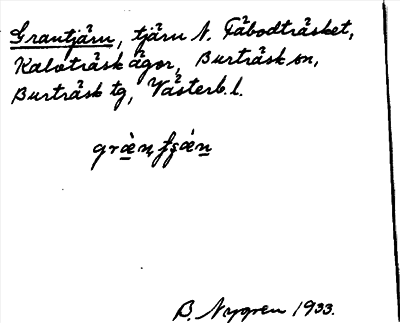 Grantjärn, tjärn N. Fäbodträsket,
Kalvträsk ägor, Burträsk sn,
Burträsk tg, Västerb. l.
B. Nygren 1933.